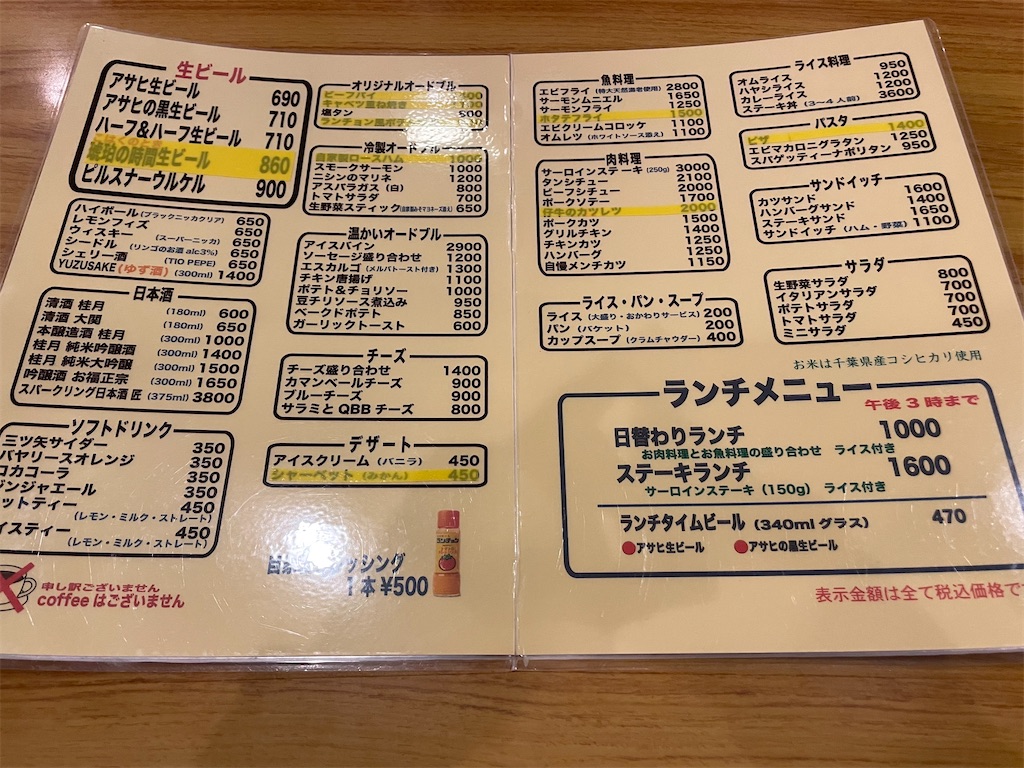 生ビール
アサヒ生ビール 690
アサヒの黒生ビール 710
ハーフ&ハーフ生ビール 710
琥珀の時間生ビール 860
ピルスナーウルケル 900
ハイボール(ブラックニッカクリア) 650
レモンフィズ 650
ウィスキー (スーパーニッカ) 650
シードル (リンゴのお酒 alc3%) 650
シェリー酒 (TIO PEPE) 650
YUZUSAKE(ゆず酒) (300ml) 1400
日本酒
清酒 桂月 (180ml) 600
清酒 大関 (180ml) 650
本醸造酒 桂月 (300ml) 1000
桂月 純米吟醸酒 (300ml) 1400
桂月 純米大吟醸 (300ml) 1500
吟醸酒 お福正宗 (300ml) 1650
スパークリング日本酒 匠 (375ml) 3800
ソフトドリンク
三ツ矢サイダー 350
バヤリースオレンジ 350
コカコーラ 350
ジンジャエール 350
ットティー 450
(レモン・ミルク・ストレート)
イスティー 450
(レモン・ミルク・ストレート)
申し訳ございません
coffee はございません
オリジナルオードブル
ビーフパイ
キャベツ重ね焼き
塩タン
ランチョン風ポテ
冷製オードブル
自家製ロースハム 1000
スモークサーモン 1000
ニシンのマリネ 1200
アスパラガス (白) 800
トマトサラダ 700
生野菜スティック(自家製みそマヨネーズ添え) 650
温かいオードブル
アイスバイン 2900
ソーセージ盛り合わせ 1200
エスカルゴ (メルバトースト付き) 1300
チキン唐揚げ 1100
ポテト&チョリソー 1000
豆チリソース煮込み 950
ベークドポテト 850
ガーリックトースト 600
チーズ
チーズ盛り合わせ 1400
カマンベールチーズ 900
ブルーチーズ 900
サラミと QBB チーズ 800
デザート
アイスクリーム (バニラ) 450
シャーベット (みかん) 450
ッシング
1本 ¥500
魚料理
エビフライ (特大天然海老使用) 2800
サーモンムニエル 1650
サーモンフライ 1250
ホタテフライ 1500
エビクリームコロッケ 1100
オムレツ (ホワイトソース添え) 1100
肉料理
サーロインステーキ (250g) 3000
タンシチュー 2100
ビーフシチュー 2000
ポークソテー 1700
仔牛のカツレツ 2000
ポークカツ 1500
グリルチキン 1400
チキンカツ 1250
ハンバーグ 1250
自慢メンチカツ 1150
ライス・パン・スープ
ライス (大盛り・おかわりサービス) 200
パン (バケット) 200
カップスープ (クラムチャウダー) 400
ライス料理
オムライス 950
ハヤシライス 1200
カレーライス 1200
ステーキ丼 (3〜4人前) 3600
パスタ
ピザ 1400
エビマカロニグラタン 1250
スパゲッティーナポリタン 950
サンドイッチ
カツサンド 1600
ハンバーグサンド 1400
ステーキサンド 1650
サンドイッチ (ハム・野菜) 1100
サラダ
生野菜サラダ 800
イタリアンサラダ 700
ポテトサラダ 700
トマトサラダ 700
ミニサラダ 450
お米は千葉県産コシヒカリ使用
ランチメニュー
午後3時まで
日替わりランチ 1000
お肉料理とお魚料理の盛り合わせ ライス付き
ステーキランチ 1600
サーロインステーキ (150g) ライス付き
ランチタイムビール (340ml グラス) 470
●アサヒ生ビール ●アサヒの黒生ビール
表示金額は全て税込価格で